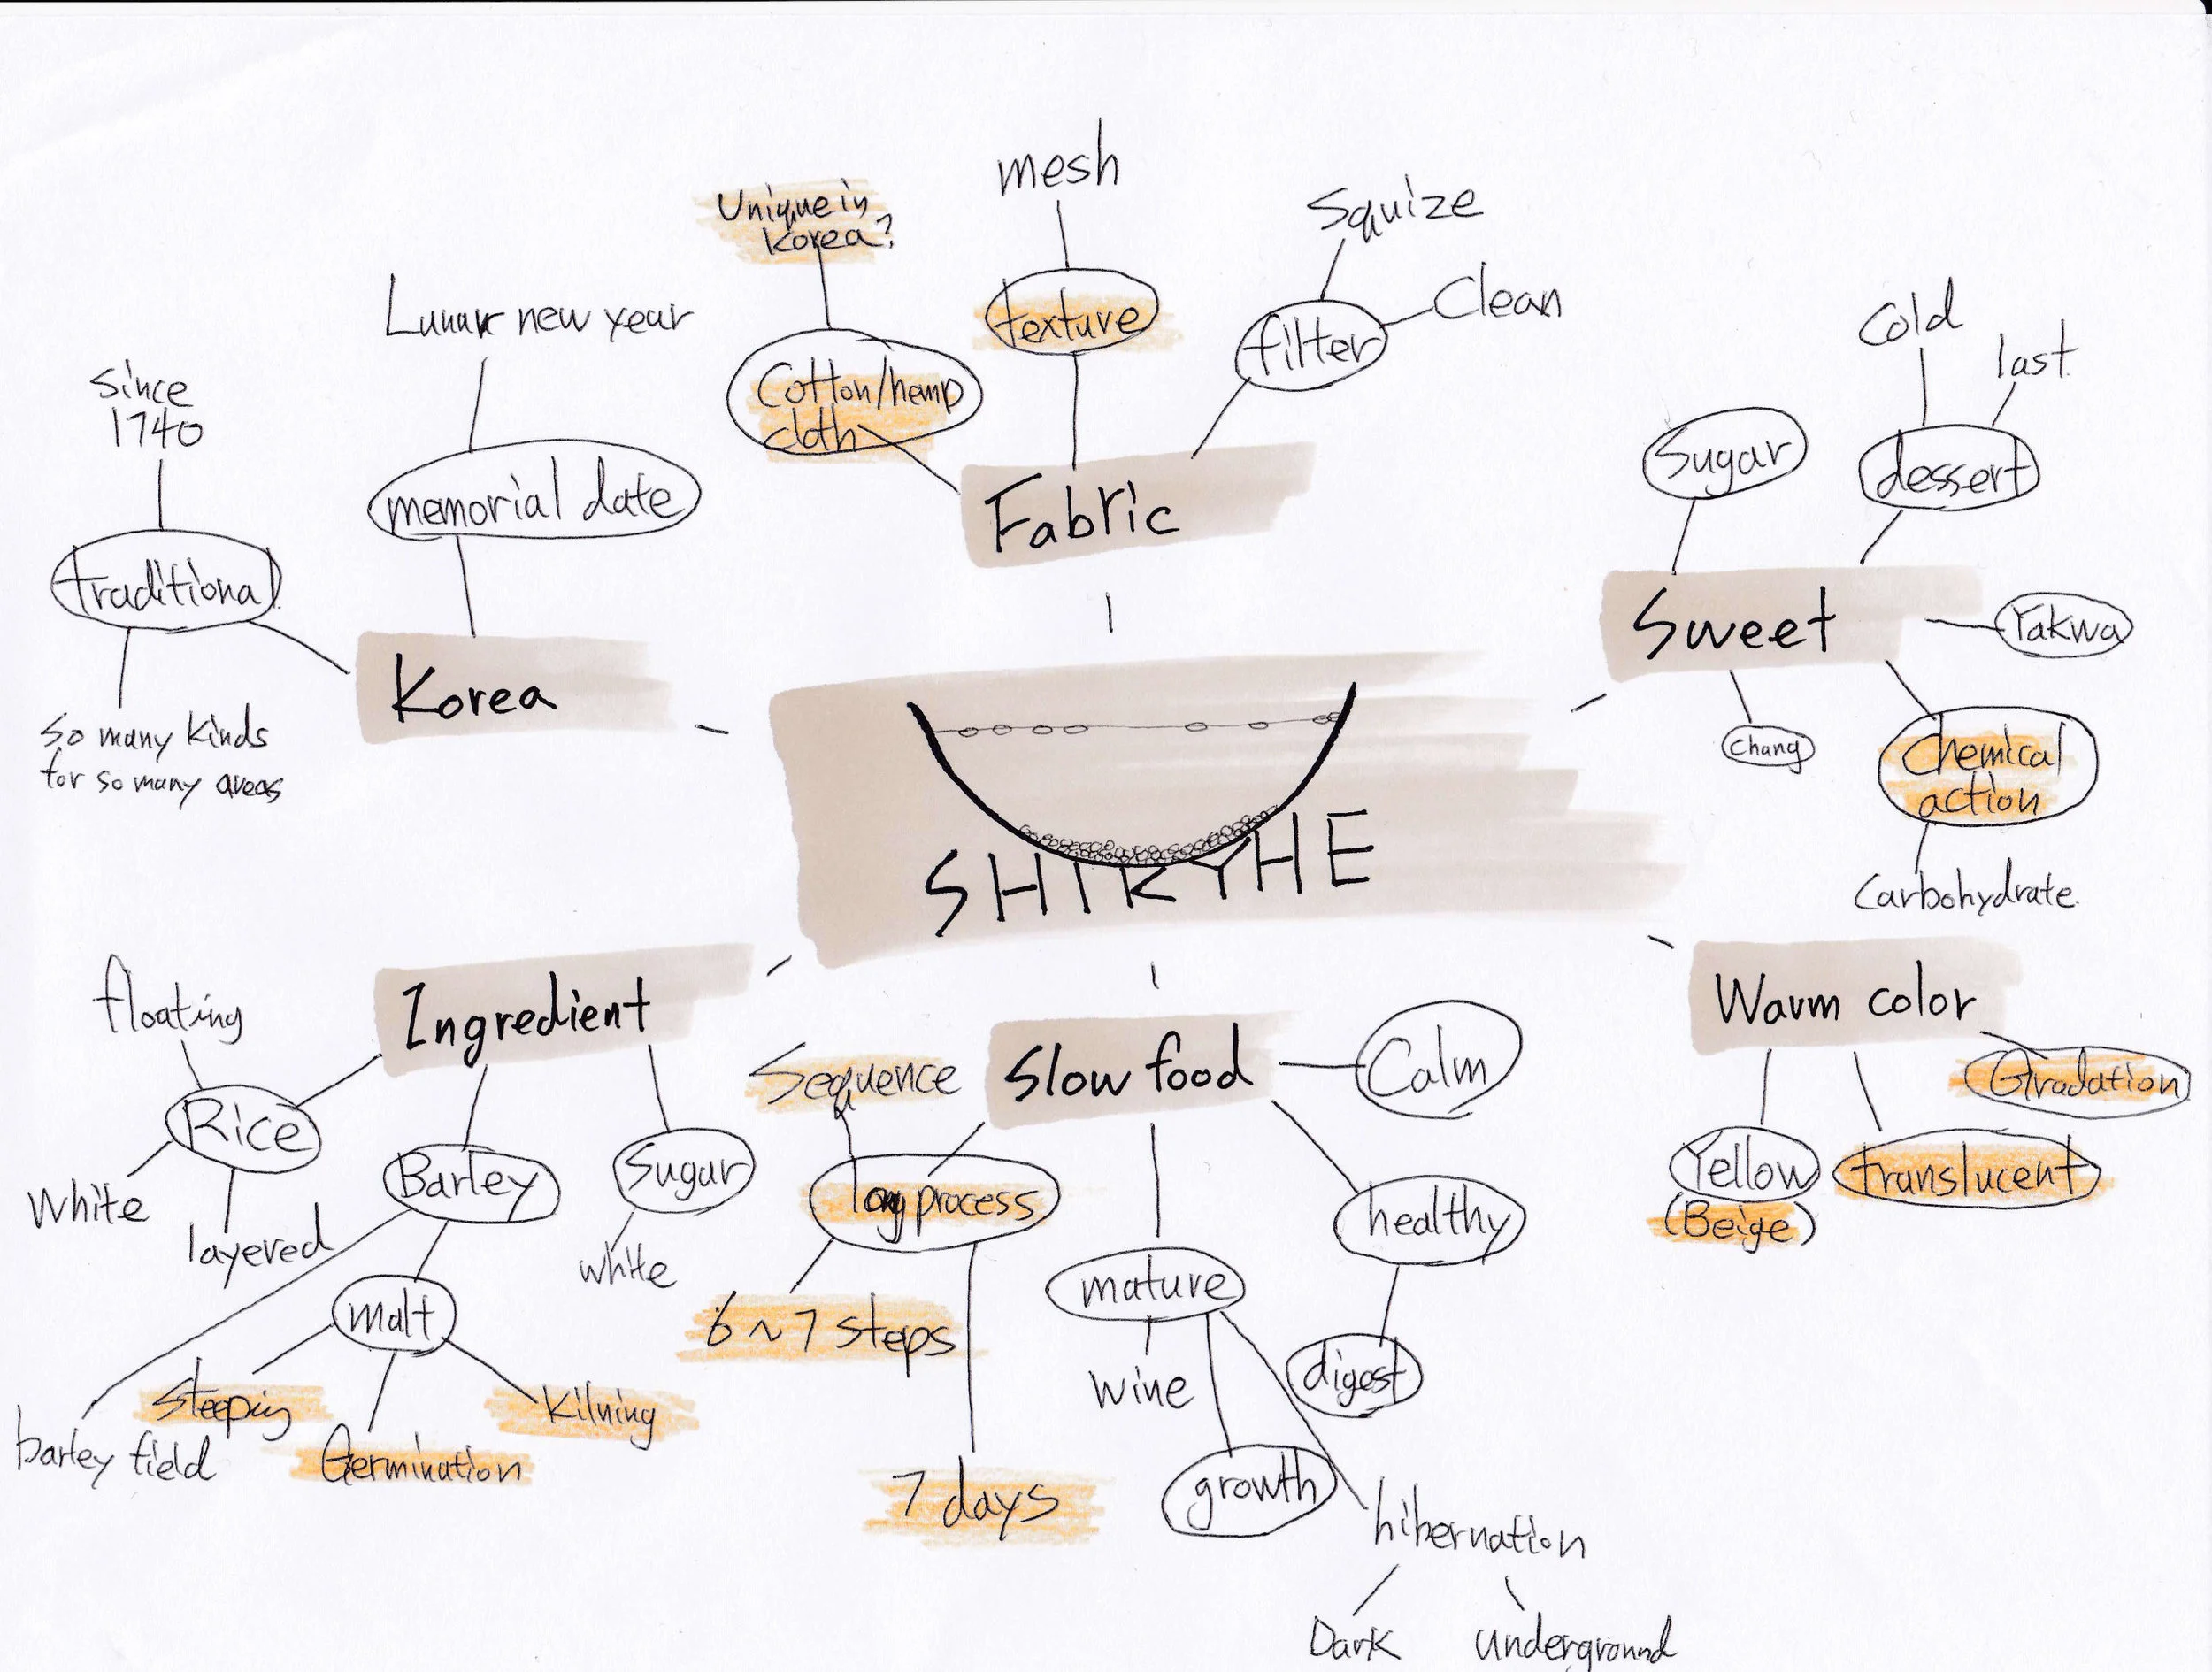 mesh
Unique in
Korea?
Squize
Clean
texture
filter
Cotton/hemp
cloth
Fabric
Lunar new year
since
1740
memorial date
traditional
Korea
so many kinds
for so many areas
Cold
last
Sugar
dessert
Sweet
Yakwa
Chang
Chemical
action
Carbohydrate
SHIKYHE
Warm color
Gradation
Yellow
(Beige)
translucent
floating
Ingredient
Rice
White
layered
Barley
Sugar
white
malt
Steeping
Germination
Kilning
barley field
Sequence
Slow food
Calm
long process
healthy
6~7 steps
mature
wine
digest
7 days
growth
hibernation
Dark
underground